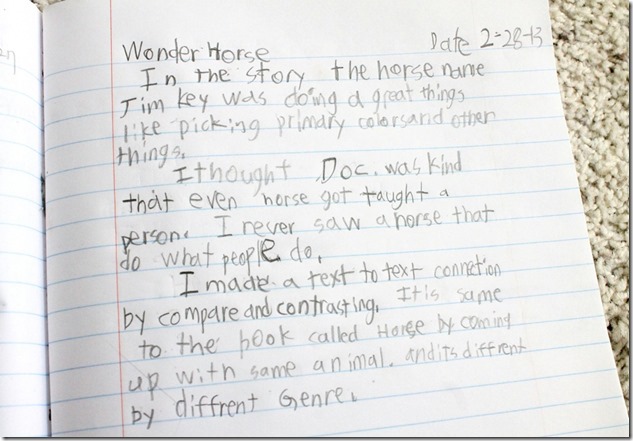 Wonder Horse
Date 2-28-13
In the story the horse name
Jim key was doing a great things
like picking primary colorsand other
things.
I thought Doc. was kind
that even horse got taught a
person. I never saw a horse that
do what people do.
I made a text to text connetion
by compare and contrasting. It is same
to the book called Horse by coming
up with same animal. and its diffrent
by diffrent Genre.